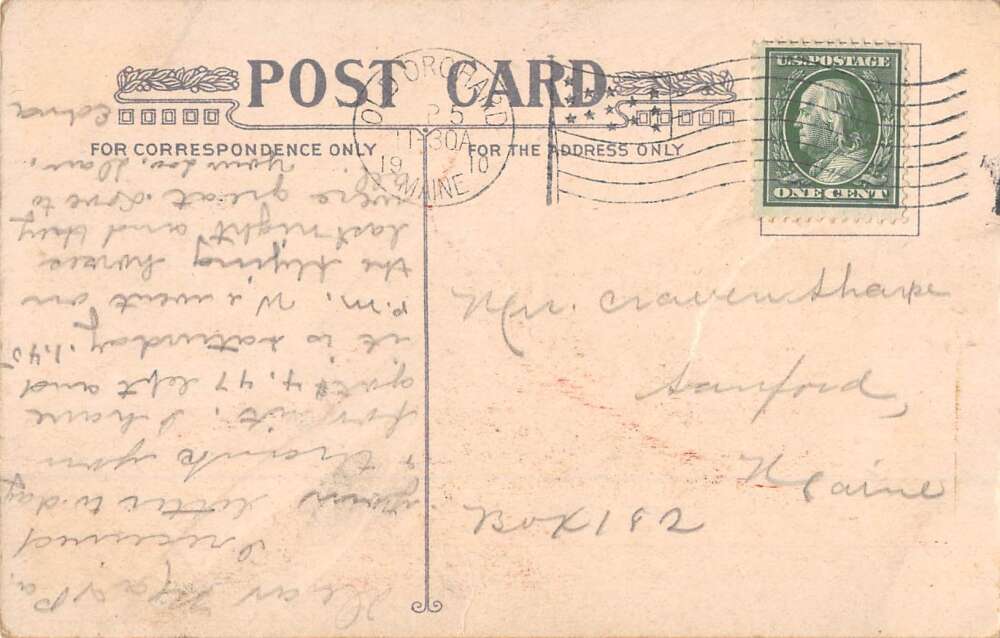 POST CARD
FOR CORRESPONDENCE ONLY
FOR THE ADDRESS ONLY
OLD ORCHARD
11 30A
19 10
MAINE
U.S. POSTAGE
ONE CENT
Mr. Craven Sharpe
Sanford,
Maine
Box 182
Dear Ma & Pa,
I received
your letter to-day
& thank you
for it. I have
got $4.47 left and
it is saturday, 1.45
P.M. We went on
the flying horses
last night and they
were great. Love to
Your Dau.
Edna